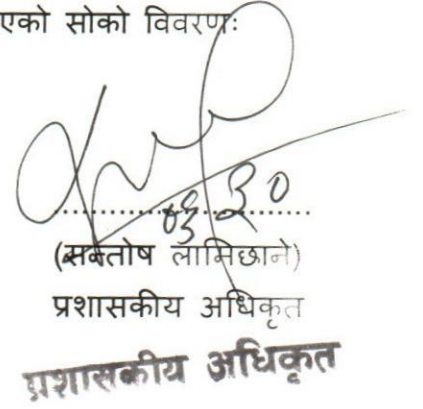 एको सोको विवरणः
०६ ३०
(सन्तोष लामिछाने)
प्रशासकीय अधिकृत
प्रशासकीय अधिकृत